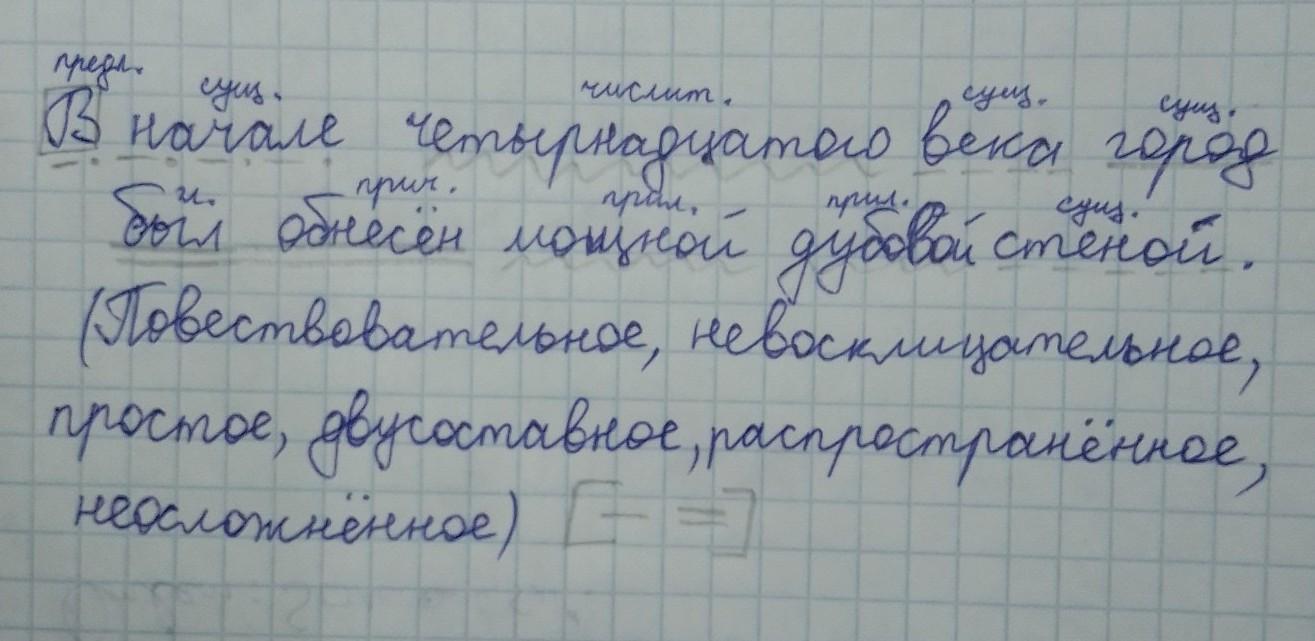 предл. сущ. числит. сущ. сущ.
В начале четырнадцатого века город
прич. прил. прил. сущ.
был обнесён мощной дубовой стеной.
(Повествовательное, невосклицательное,
простое, двусоставное, распространённое,
неосложнённое) [— =]